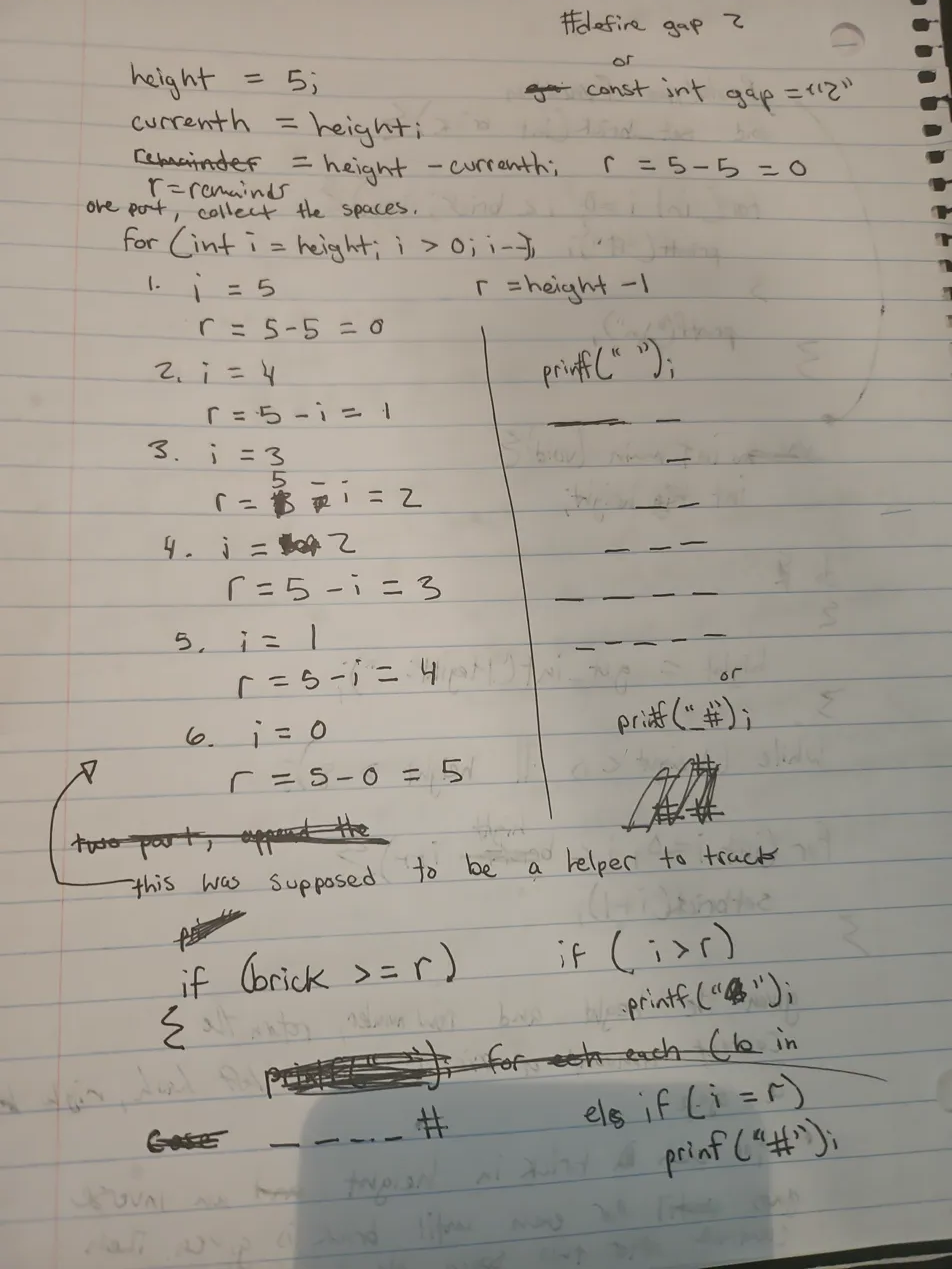 #define gap 2
or
const int gap = "2"
height = 5;
currenth = height;
remainder = height - currenth; r = 5 - 5 = 0
r = remainds
one part, collect the spaces.
for (int i = height; i > 0; i--);
1. i = 5 r = height - 1
r = 5 - 5 = 0
2. i = 4 printf(" ");
r = 5 - i = 1 _ _
3. i = 3 _
r = 5 - i = 2 _ _
4. i = 2 _ _ _
r = 5 - i = 3 _ _ _ _
5. i = 1 _ _ _ _ _
r = 5 - i = 4 or
6. i = 0 printf("_#");
r = 5 - 0 = 5 #
# #
two part, append the
this was supposed to be a helper to track
if (brick >= r) if (i > r)
{ printf(" ");
printf(" "); for each each (b in
Case _ _ _ _ # els if (i = r)
prinf("#");